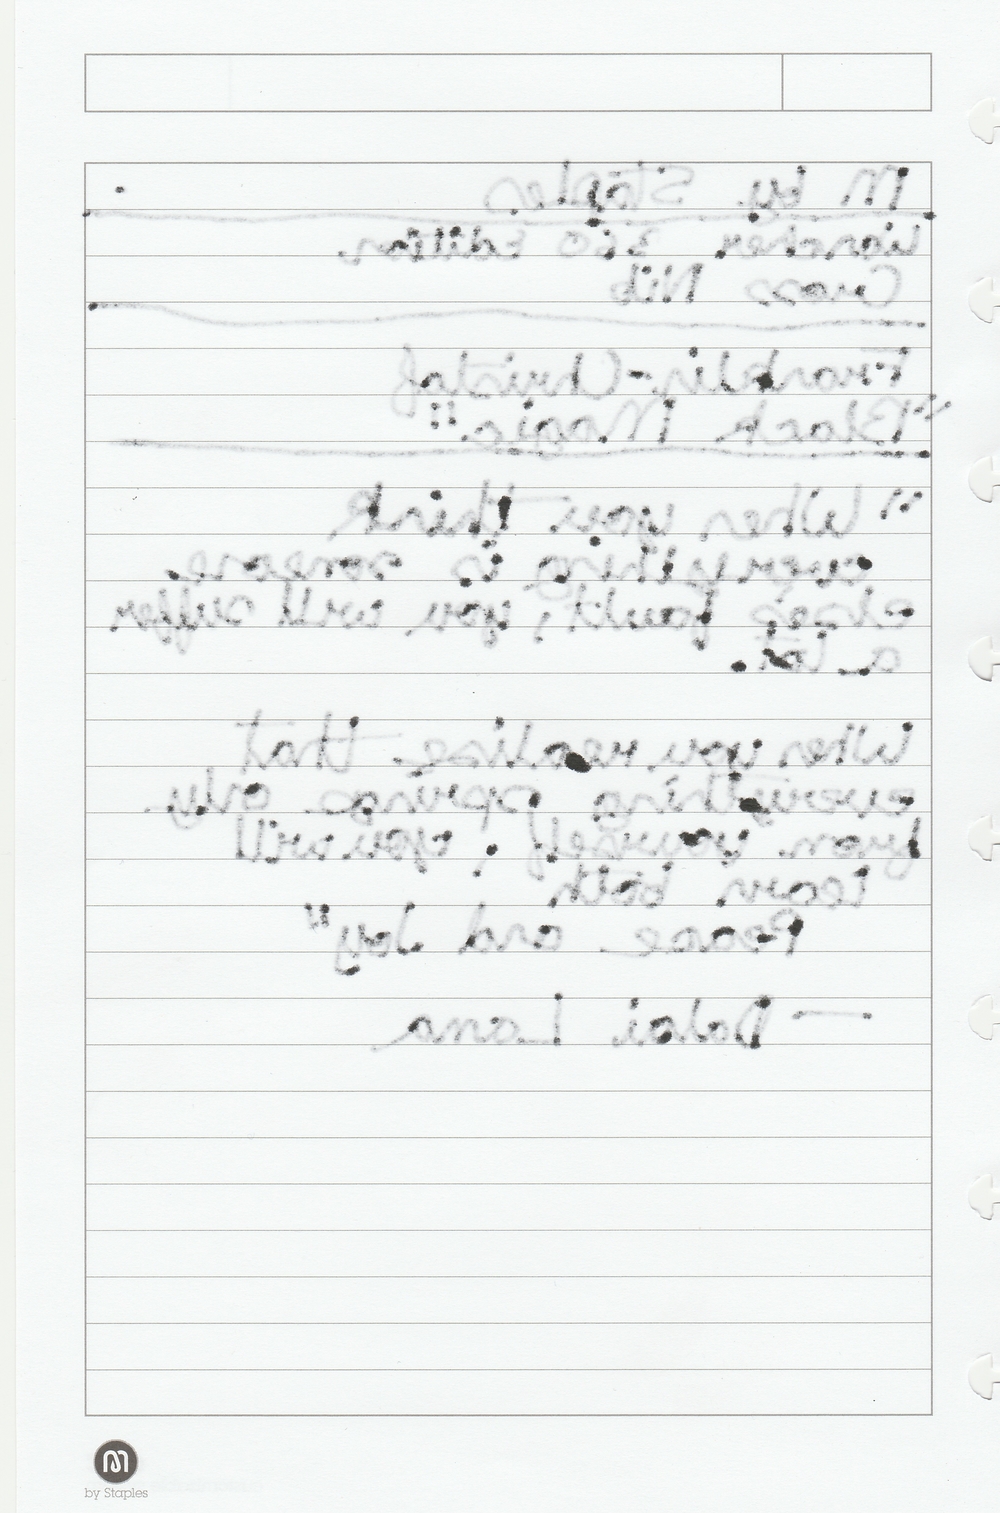 M by Staples
Lionchen 360 Edition
Cross Nib
Franklin-Christof
"Black Magic"
"When you think
everything is someone
elses fault, you will suffer
a lot.
When you realise that
everything springs only
from yourself, you will
learn both
Peace and Joy"
— Dalai Lama
by Staples